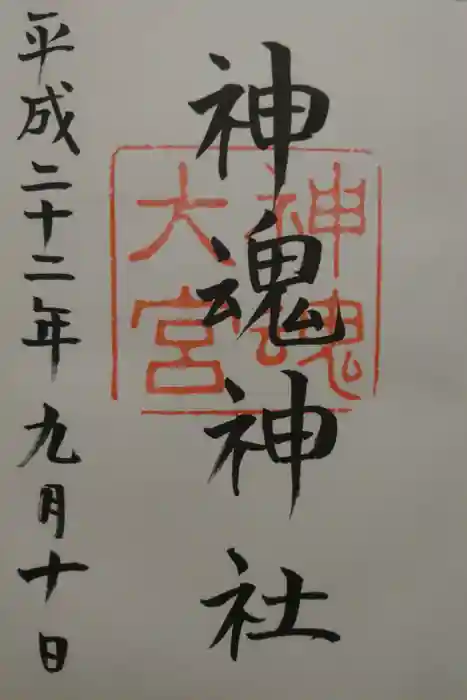 神魂神社
神魂
大宮
平成二十二年九月十日